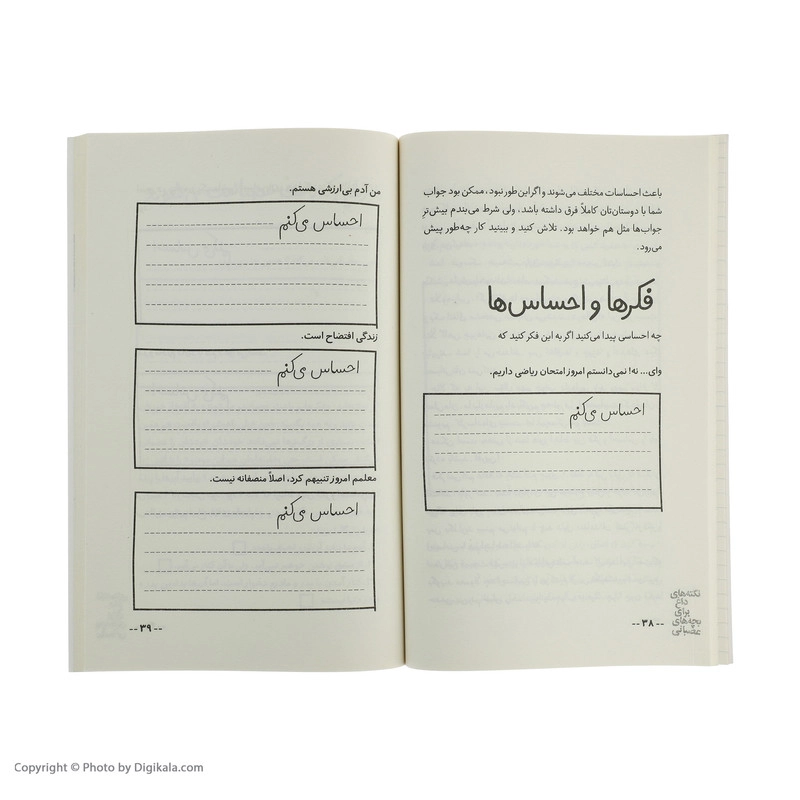 باعث احساسات مختلف می‌شوند و اگر این طور نبود، ممکن بود جواب
شما با دوستان‌تان کاملاً فرق داشته باشد، ولی شرط می‌بندم بیش‌تر
جواب‌ها مثل هم خواهد بود. تلاش کنید و ببینید کار چه‌طور پیش
می‌رود.
فکرها و احساس‌ها
چه احساسی پیدا می‌کنید اگر به این فکر کنید که
وای... نه! نمی‌دانستم امروز امتحان ریاضی داریم.
احساس می‌کنم
نکته‌های
داغ
برای
بچه‌های
عصبانی
-- ۳۸ --
من آدم بی‌ارزشی هستم.
احساس می‌کنم
زندگی افتضاح است.
احساس می‌کنم
معلمم امروز تنبیهم کرد، اصلاً منصفانه نیست.
احساس می‌کنم
-- ۳۹ --
Copyright © Photo by Digikala.com